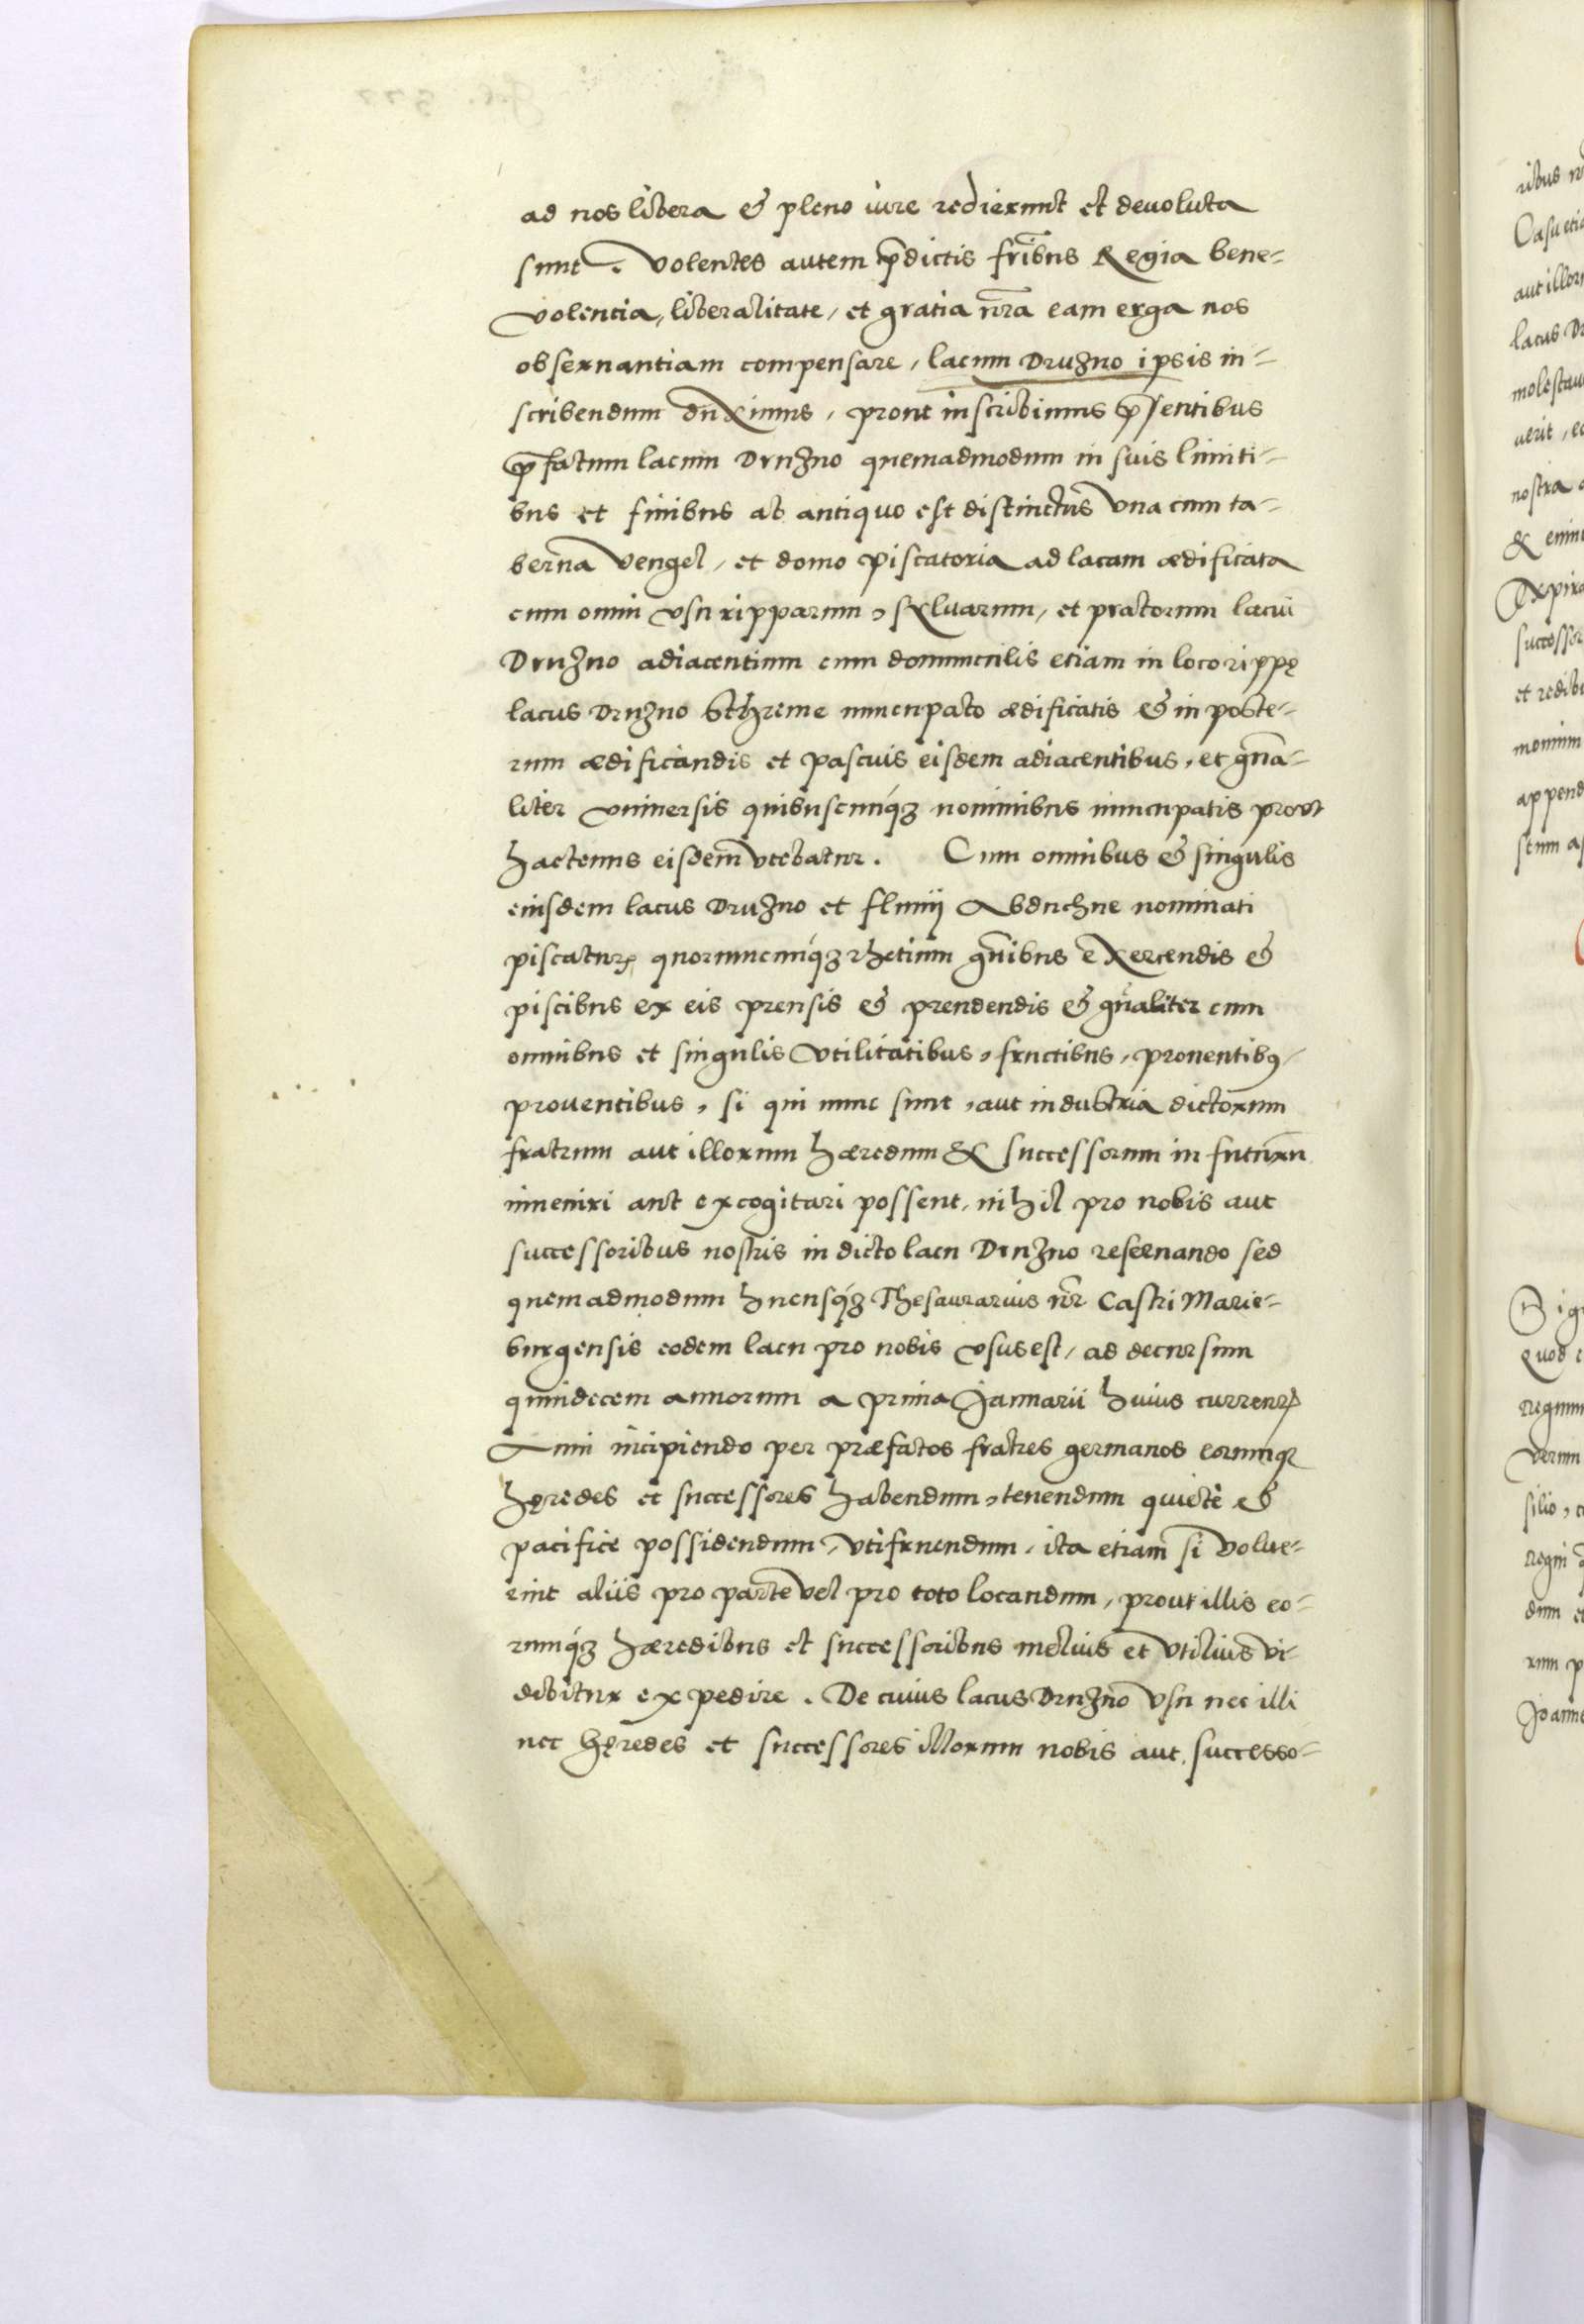 ad nos libera & pleno iure redierunt et deuoluta
sunt. Volentes autem p̄dictis fr̄ibus Regia bene-
volentia, liberalitate, et gratia nr̄a eam erga nos
obseruantiam compensare, lacum Druzno ipsis in-
scribendum duximus, prout inscribimus p̄sentibus
p̄fatum lacum Druzno quemadmodum in suis limiti-
bus et finibus ab antiquo est distinctus vna cum ta-
berna Vengel, et domo piscatoria ad lacum ædificata
cum omni vsu ripparum, sylvarum, et pratorum lacui
Druzno adiacentium cum domunculis etiam in loco rippę
lacus Druzno Schreme nuncupato ædificatis & in poste-
rum ædificandis et pascuis eisdem adiacentibus, et gn̄a-
liter vniuersis quibuscunq̃ nominibus nuncupatis prout
hactenus eisdem vtebatur. Cum omnibus & singulis
eiusdem lacus Druzno et fluuij Abduchne nominati
piscaturę quorumcunq̃ rhetium gn̄ibus exercendis &
piscibus ex eis prensis & prendendis & gn̄aliter cum
omnibus et singulis vtilitatibus, fructibus, prouentibꝯ,
prouentibus, si qui nunc sunt, aut industria dictorum
fratrum aut illorum hæredum & successorum in futurū
inueniri aut excogitari possent, nihil pro nobis aut
successoribus nostris in dicto lacu Druzno reseruando sed
quemadmodum hucusq̃ Thesaurarius nr̄ Castri Marie-
burgensis eodem lacu pro nobis vsus est, ad decursum
quindecem annorum a prima Januarii huius currenꝭ
Anni incipiendo per præfatos fratres germanos eorumq̃
hęredes et successores habendum, tenendum quiete &
pacifice possidendum, vtifruendum, ita etiam si volue-
rint aliis pro parte vel pro toto locandum, prout illis eo-
rumq̃ hæredibus et successoribus melius et vtilius vi-
debitur expedire. De cuius lacus Druzno vsu nec illi
nec hęredes et successores illorum nobis aut successo-